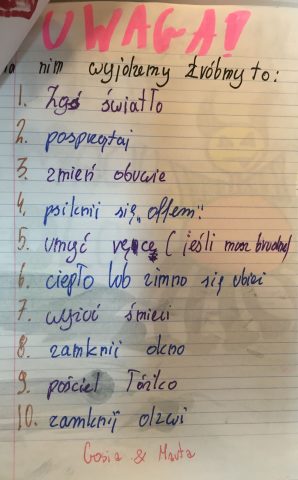 UWAGA!
nim wyjdziemy zróbmy to:
1. Zgaś światło
2. posprzątaj
3. zmień obuwie
4. psiknij się „offem"
5. umyć ręce (jeśli masz brudne)
6. ciepło lob zimno się ubierz
7. wyżuć śmieci
8. zamknij okno
9. pościel łóżko
10. zamknij dzwi
Gosia & Marta